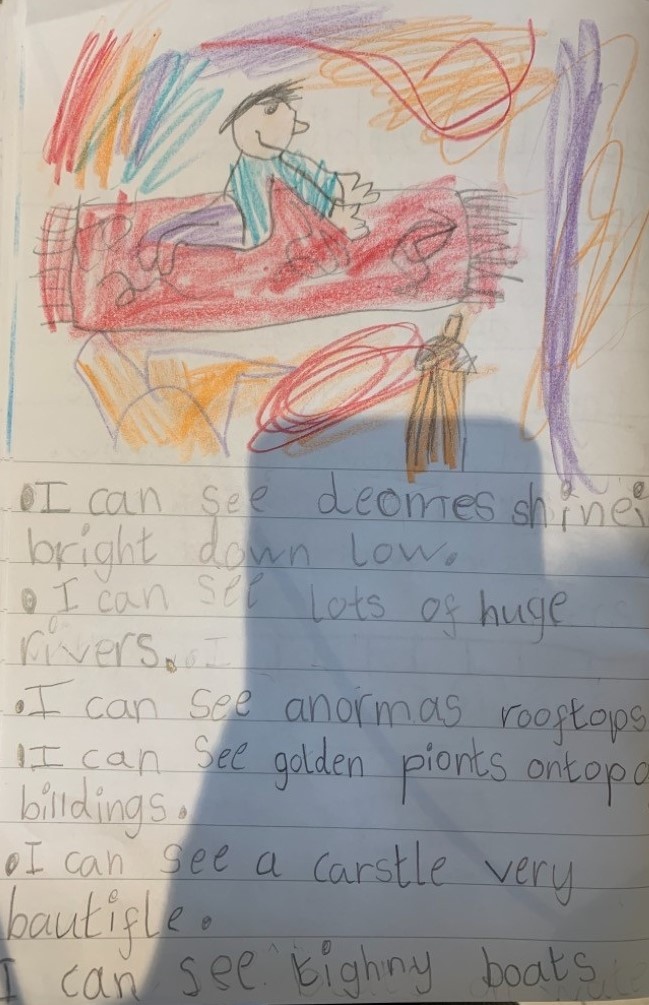 I can see deomes shine
bright down low.
I can see lots of huge
rivers.
I can see anormas rooftops
I can see golden pionts ontop
billdings.
I can see a carstle very
bautifle.
I can see tighny boats